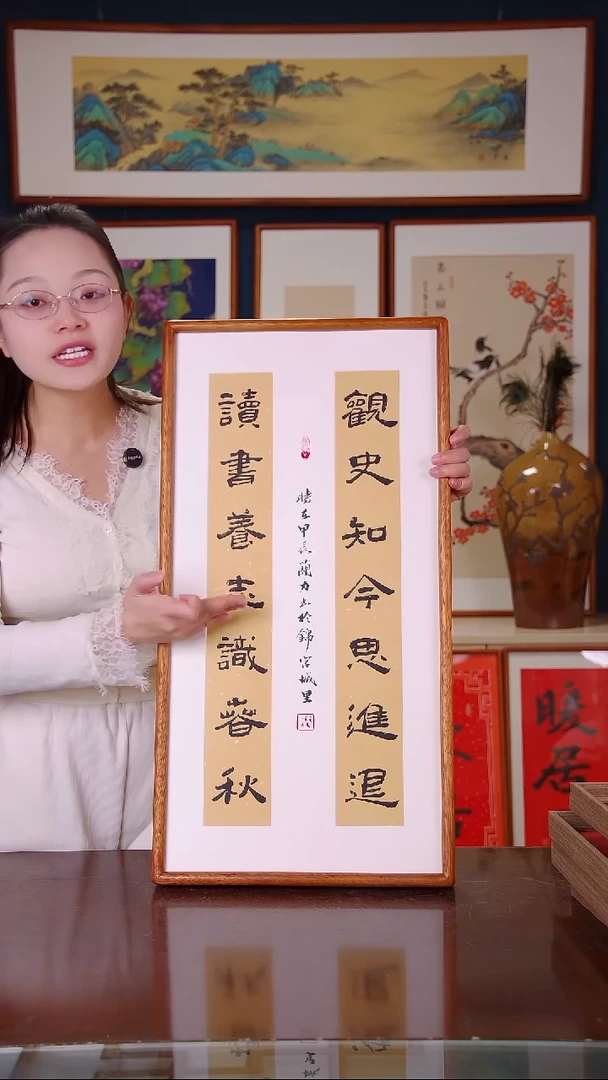 觀史知今思進退
在甲辰蘭於錦官城里
讀書養志識春秋
暖居